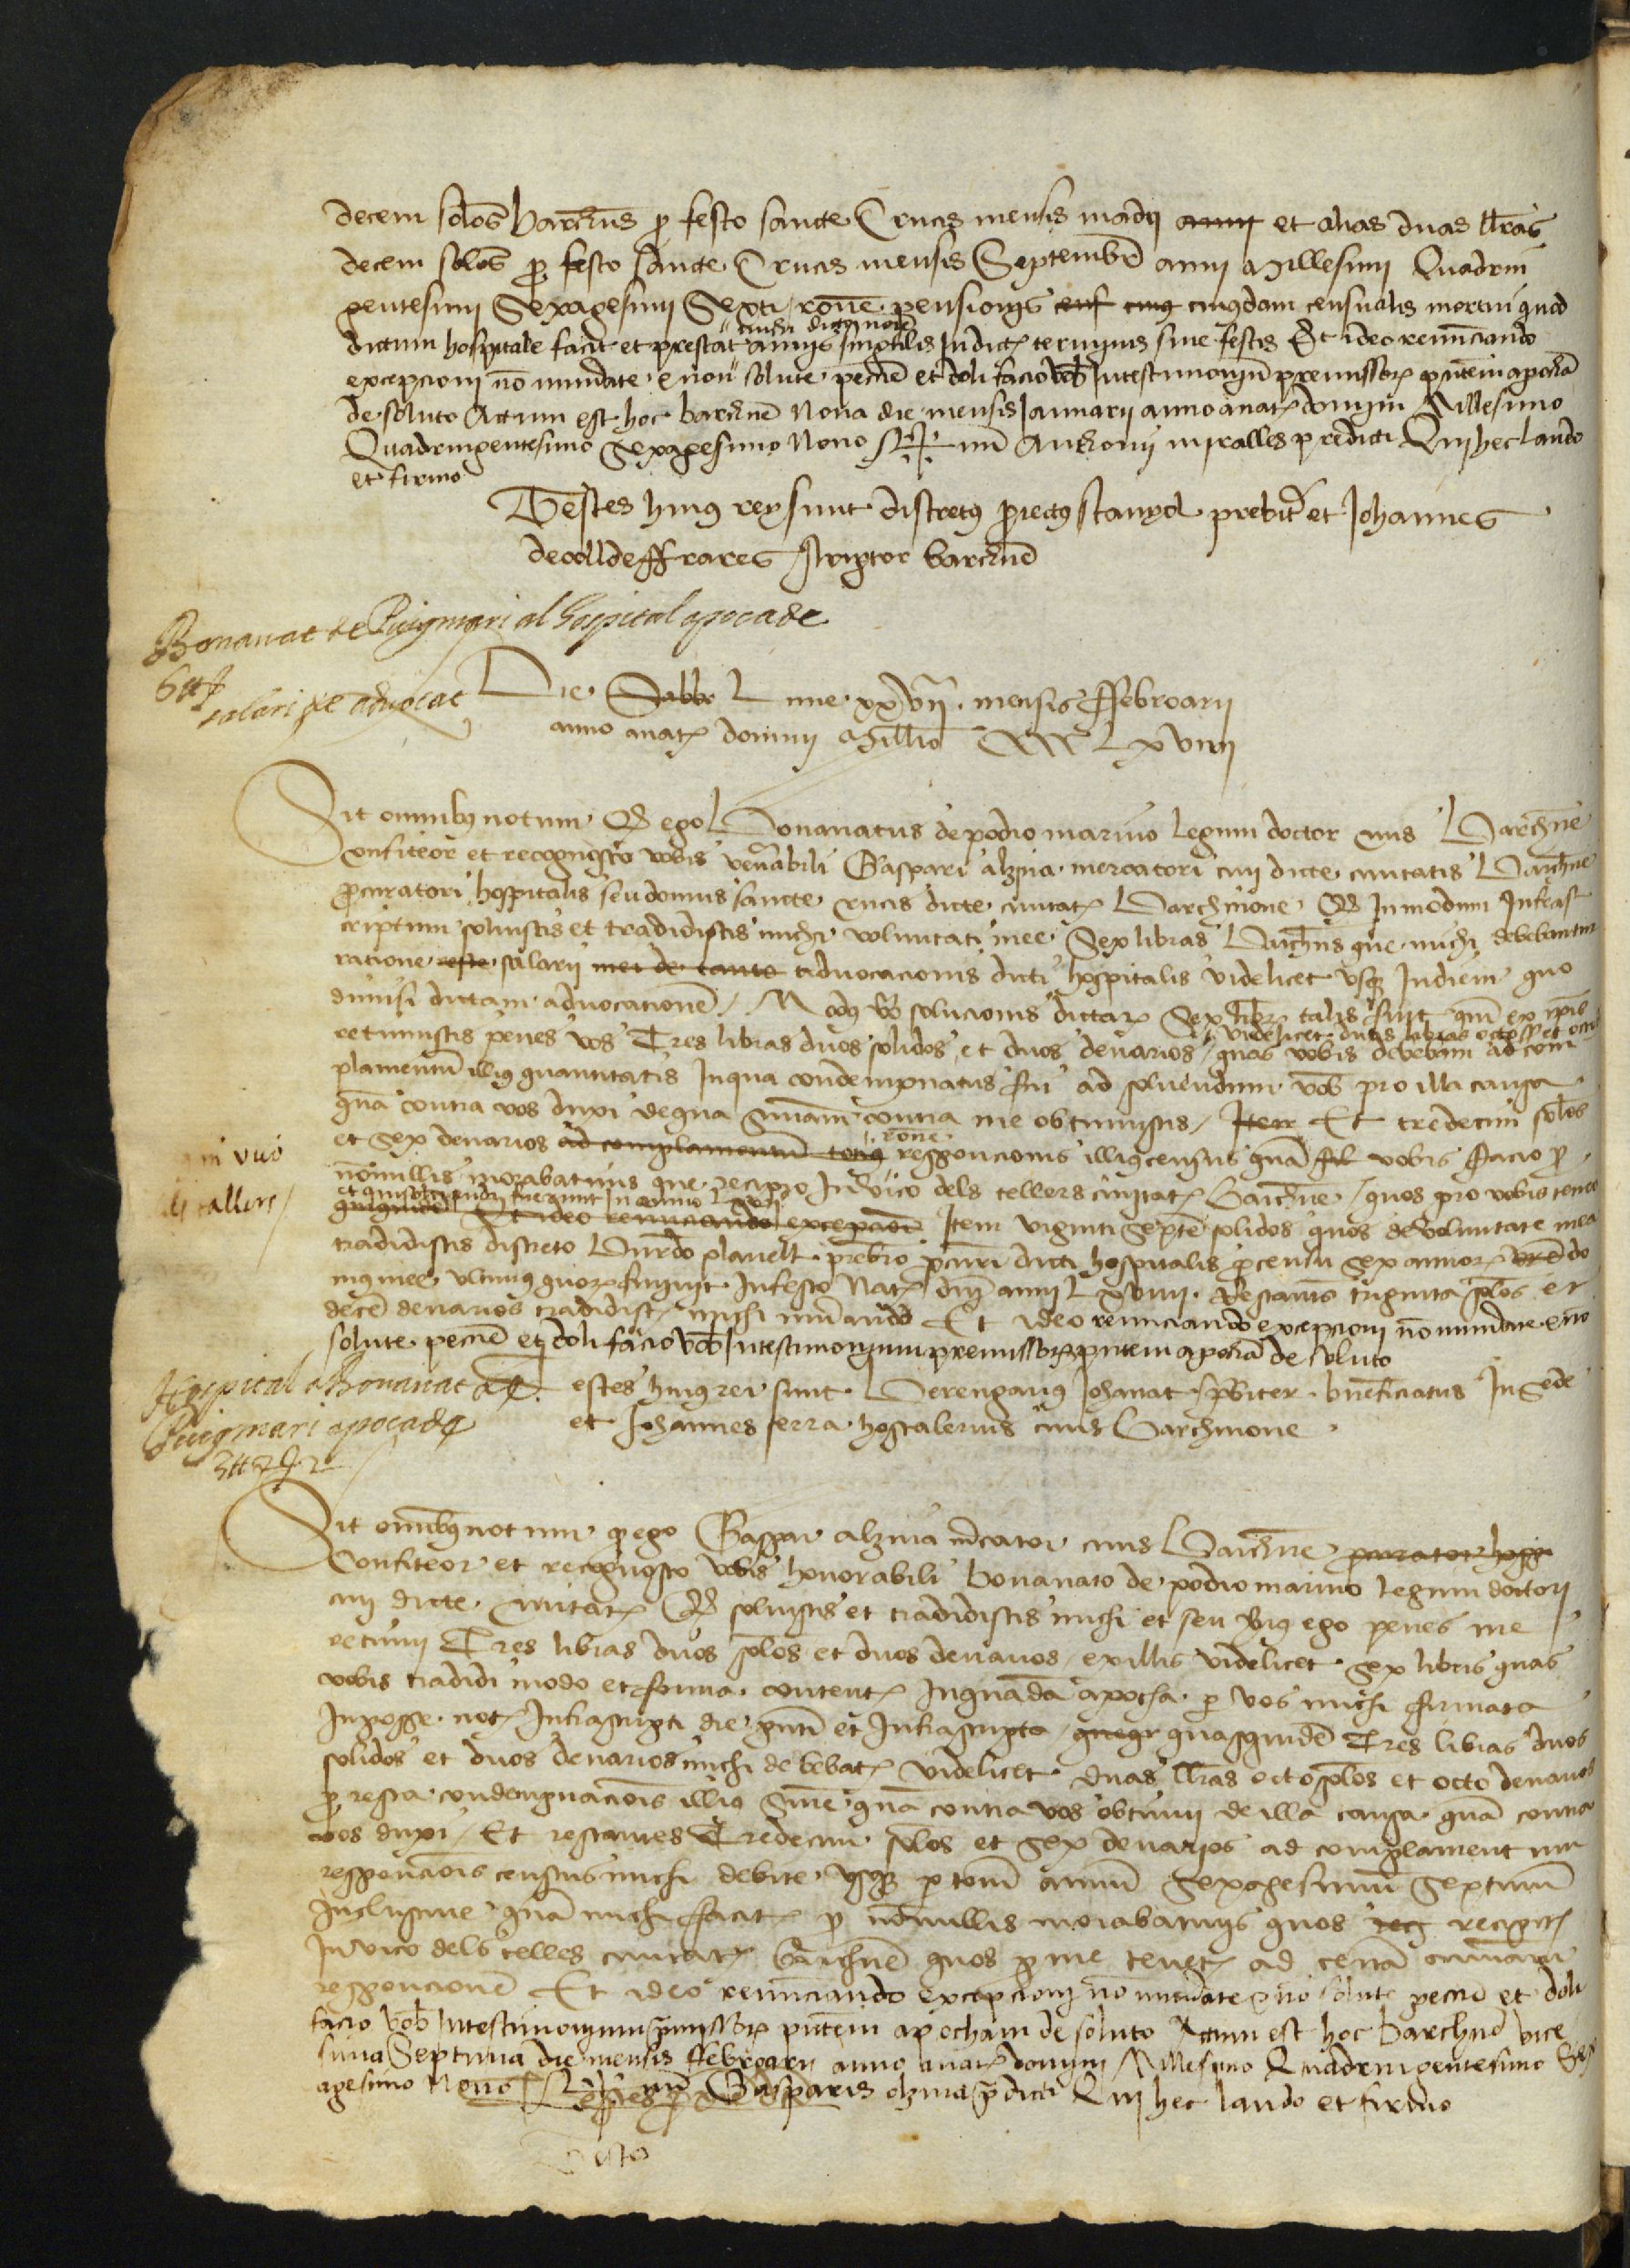 decem solos barchns p festo sancte Crucis mensis madii annj et alias duas llras
decem solos p festo sancte Crucis mensis Septembr annj Millesimi Quadrin
gentesimi Sexagesimi Sexti rone pensionis cuiusdam censualis mortui quod
michi dicto noie
dictum hospitale facit et prestat annis singulis In dict terminis siue festis Et ideo renunciando
excepcioni no numerate e non solute peccnie et doli facio vob In testimonium premissor pntem apocha
de soluto Actum est hoc barchne Nona die mensis Januarij anno anat domini Millesimo
Quadringentesimo Sexagesimo Nono S num Anthonij miralles predicti Qui hec laudo
et firmo
Testes huius rey sunt discretus stanyol prebiter et Johannes
decolldeffrares scriptor barchne
Bonanat de Puigmari al hospital apoca de
6 ll
salari de aduocat
Die Sabbi Lune xxvij mensis ffebroarij
anno anat domini Millio CCCC Lxviiij
Sit omnibus notum Qd ego Bonanatus de podio marino legum doctor ciuis Barchne
Confiteor et recognosco vobis venerabili Gaspari alzina mercatori ciui dicte ciuitatis Barchne
procuratori hospitalis seu domus sancte crucis dicte ciuitat Barchinone Qd In modum Infras
criptum soluistis et tradidistis michi voluntati mee Sex libras Barchns que michi debebantur
ratione reste salarij mei de tanto aduocacionis dicti hospitalis videlicet vsq In diem quo
dimisi dictam aduocationem Modus vo solucionis dictar Sex libr talis fuit qm ex ipis
videlicet duas libras octo ss et octo
retinuistis penes vos Tres libras duos solidos et duos denarios quas vobis debebam ad com
plamentu illius quantitatis In qua condempnatus fui ad soluendum vob pro illa causa
qua contra vos duxi de qua sniam contra me obtinuistis Item Et tredecim solos
rone
et sex denarios ad complamentum totius responcionis illius census quam vobis facio p
nonnullis morabatinis que recipio In vico dels tellers ciuitat Barchne quos pro vobis teneo
in vico
dels tallers
Et ideo renunciando excepcioni Item viginti septe solidos quos de voluntate mea
tradidistis discreto Bnrdo planell prebro procuri dicti hospitalis p censu sex annor
mus mee vltimus quor finiuit In festo Nat dni anni Lxviiij Restants triginta solos et
dece denarios tradidist michi numerando Et ideo renunciando excepcioni no numerate e no
solute peccnie et doli facio vob In testimonium premissor pntem apocha de soluto
Testes huius rei sunt Berengarius Johanat prbiter bnficiatus In Sede
et Johannes serra hostalerius ciuis Barchinone
Hospital a Bonanat de
Puigmari apoca de
3 ll 2 s 2
Sit omibus notum q ego Gaspar alzina mcator ciuis Barchne procurator hospi
Confiteor et recognosco vobis honorabili bonanato de podio marino legum doctori
ciui dicte ciuitat Qd soluistis et tradidistis michi et seu verius ego penes me
retinui Tres libras duos solos et duos denarios ex illis videlicet sex libris quas
vobis tradidi modo et forma content In quadam apocha p vos michi firmata
In posse not Infrascripti die pnti et Infrascripta quasquide Tres libras duos
solidos et duos denarios michi debebat videlicet duas llras octo solos et octo denarios
p resta condempnacionis illius snie qua contra vos obtinui de illa causa qua contra
vos duxi Et restantes Tredecim solos et sex denarios ad complamentum
responcionis census michi debite vsq p totu annu Sexagesimum Septimum
Inclusiue qua michi facit p nonnullis morabatinis quos recipit
In vico dels telles ciuitat Barchne quos p me tenet ad certa annuam
responcione Et ideo renunciando excepcioni no numerate e no solute peccnie et doli
facio vob In testimonium premissor pntem apocham de soluto Actum est hoc Barchne vice
sima Septima die mensis ffebroarij anno anat domini Millesimo Quadringentesimo Sex
agesimo Nono S num Gasparis alzina pdicti Qui hec laudo et firmo
Testes